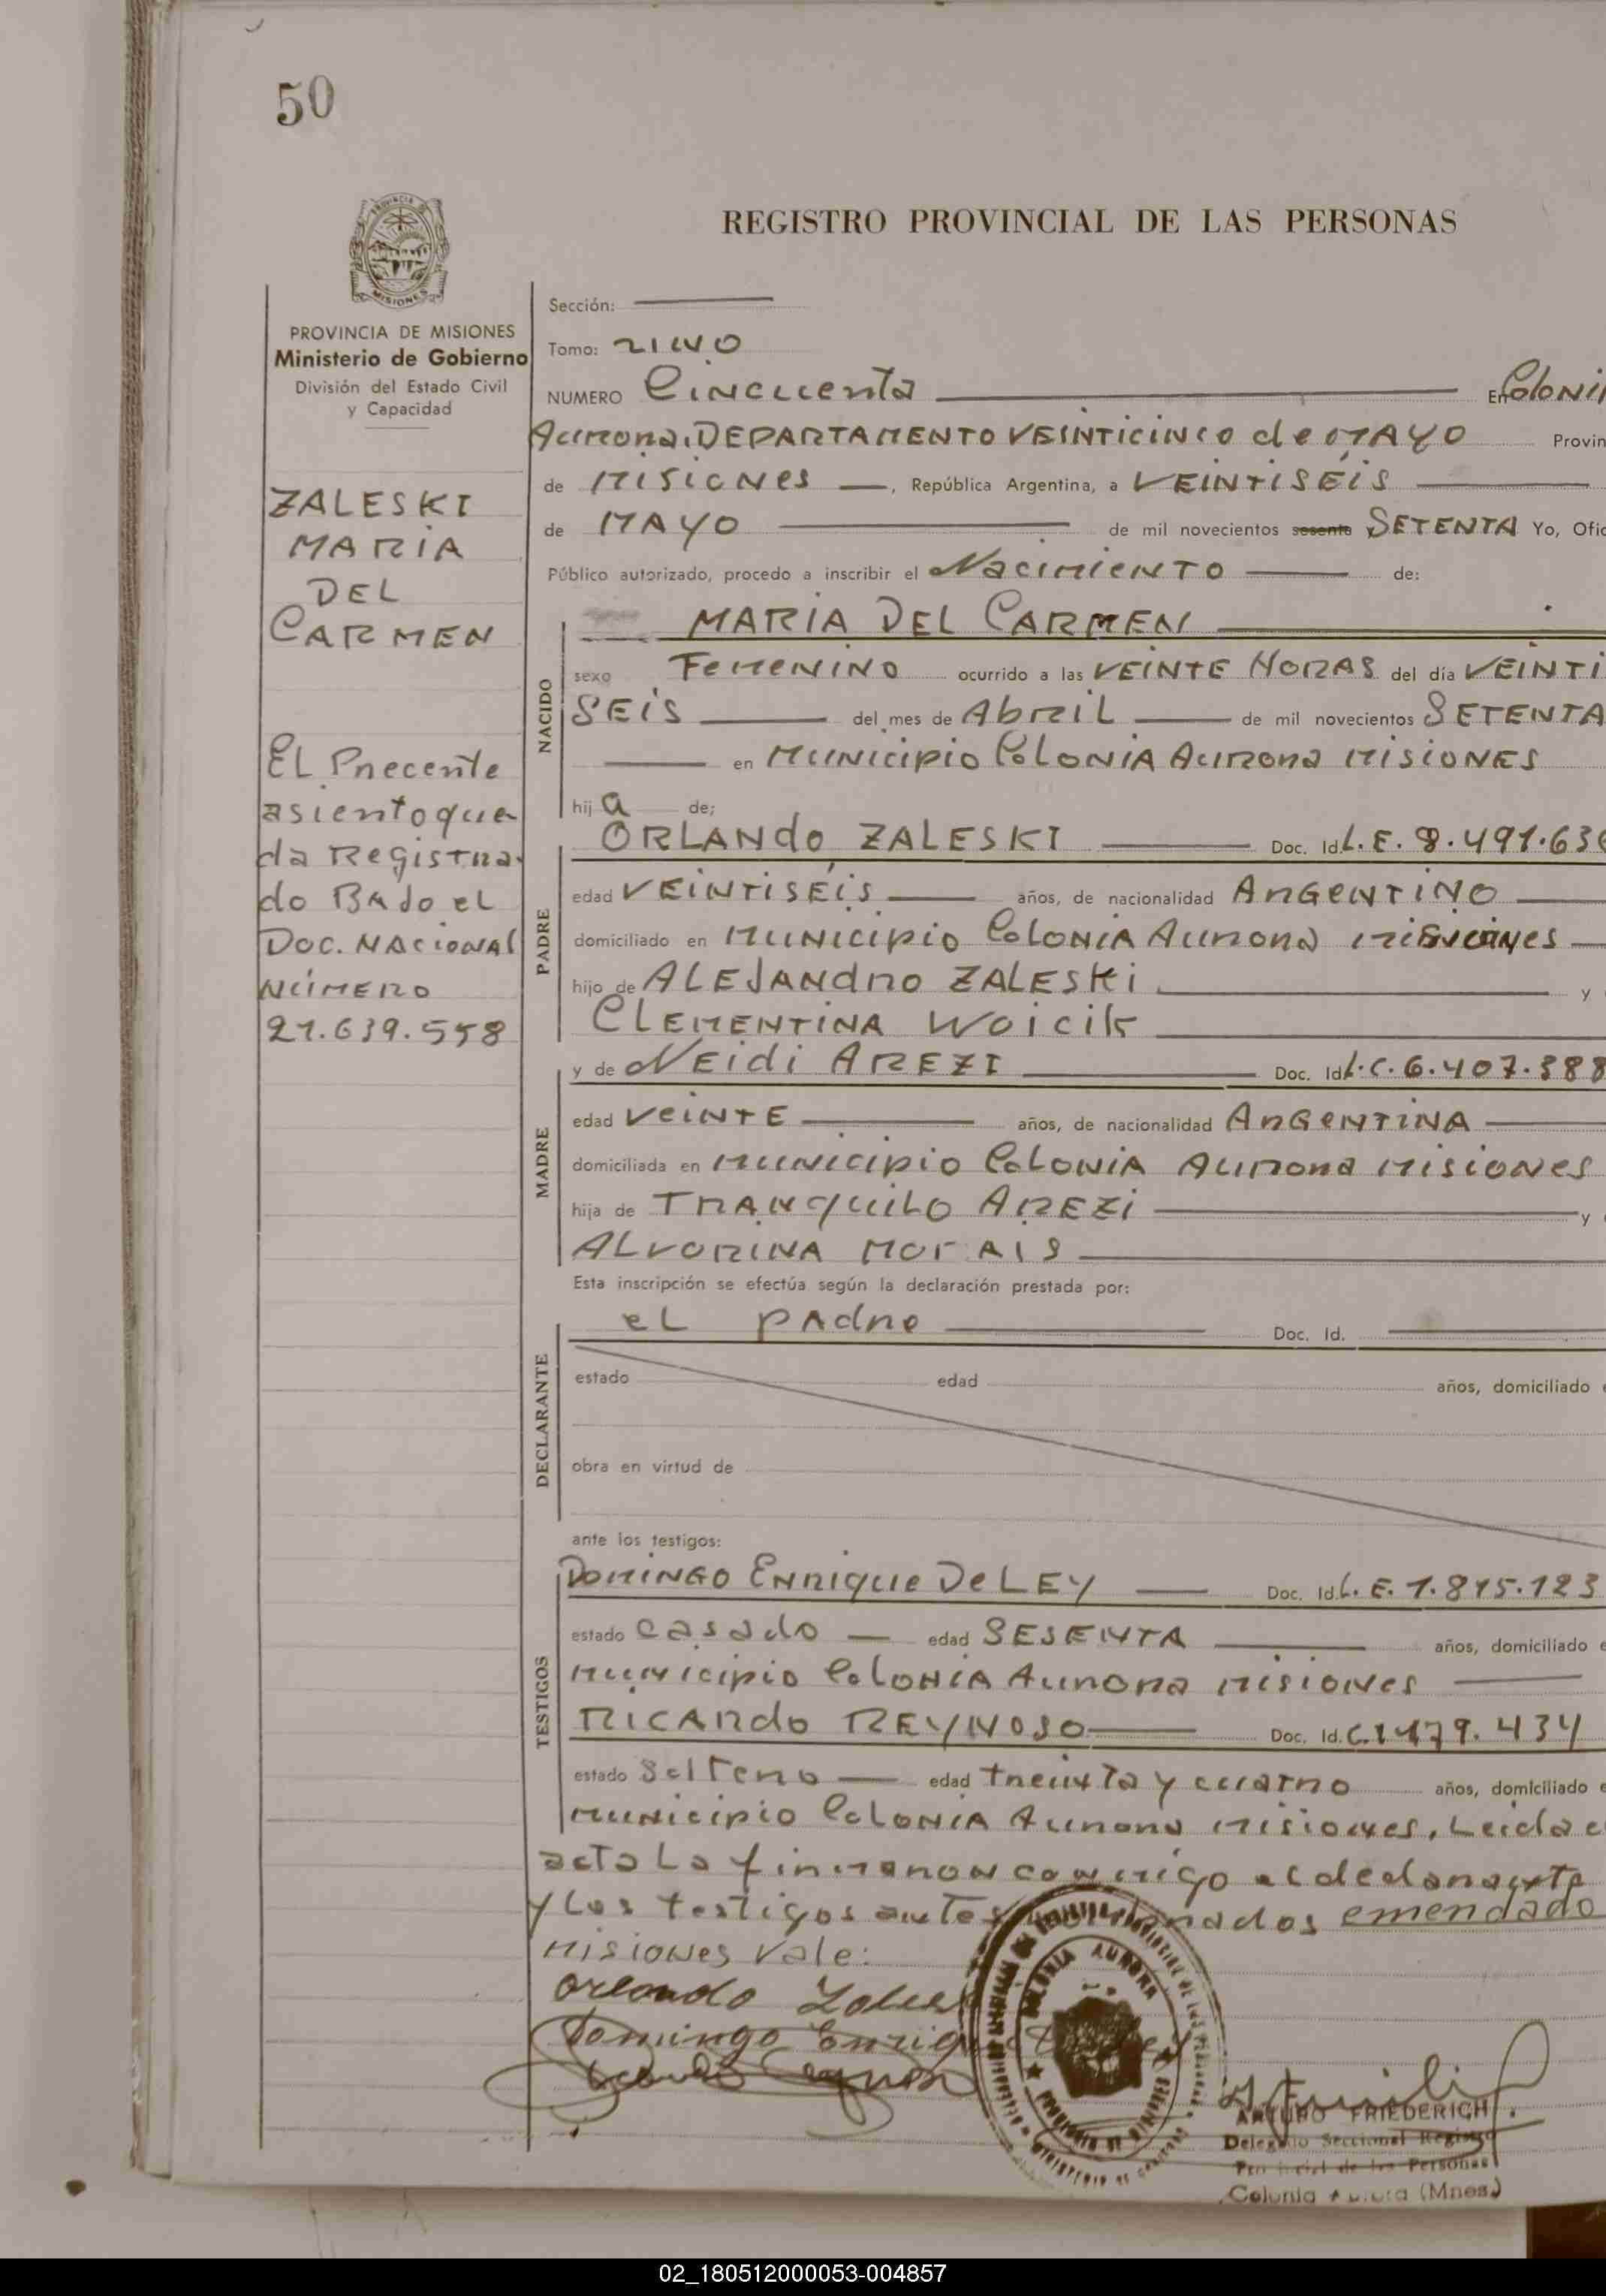 50
PROVINCIA DE
MISIONES
PROVINCIA DE MISIONES
Ministerio de Gobierno
División del Estado Civil
y Capacidad
ZALESKI
MARIA
DEL
CARMEN
EL Precente
asiento que
da Registra
do BAJo eL
Doc. NACIONAL
NÚMERO
21.639.558
REGISTRO PROVINCIAL DE LAS PERSONAS
Sección:
Tomo: UNO
NUMERO Cincuenta En Coloni
Aurora, DEPARTAMENTO VEINTICINCO de MAYO Provin
de MISIONES, República Argentina, a VEINTISÉIS
de MAYO de mil novecientos sesenta SETENTA Yo, Ofic
Público autorizado, procedo a inscribir el NACIMIENTO de:
MARIA DEL CARMEN
NACIDO
sexo FEMENINO ocurrido a las VEINTE HORAS del día VEINTI
SEIS del mes de AbRIL de mil novecientos SETENTA
en MUNICIPIO COLONIA AURORA MISIONES
hij a de;
PADRE
ORLANDO ZALESKI Doc. Id. L.E. 8.491.636
edad VEINTISÉIS años, de nacionalidad ARGENTINO
domiciliado en MUNICIPIO COLONIA AURORA MISIONES
hijo de ALEJANDRO ZALESKI y
CLEMENTINA WOICIK
MADRE
y de NEIDI AREZI Doc. Id. L.C. 6.407.388
edad VEINTE años, de nacionalidad ARGENTINA
domiciliada en MUNICIPIO COLONIA AURORA MISIONES
hija de TRANQUILO AREZI y
ALVORINA MORAIS
Esta inscripción se efectúa según la declaración prestada por:
DECLARANTE
eL PADRE Doc. Id.
estado edad años, domiciliado
obra en virtud de
ante los testigos:
TESTIGOS
DOMINGO ENRIQUE DeLEY Doc. Id. L.E. 1.815.123
estado casado edad SESENTA años, domiciliado
MUNICIPIO COLONIA AURORA MISIONES
RICARDO REYNOSO Doc. Id. C.I 479.434
estado Soltero edad treinta y cuatro años, domiciliado
MUNICIPIO COLONIA AURORA MISIONES. Leida
acta La firmaron conmigo el declarante
y Los testigos antes emendado
MISIONES Vale:
Orlando
Domingo Enrique
COLONIA AURORA
ARTURO FRIEDERICH
Delegado Seccional Registro
Provincial de las Personas
Colonia Aurora (Mnes.)
02_180512000053-004857